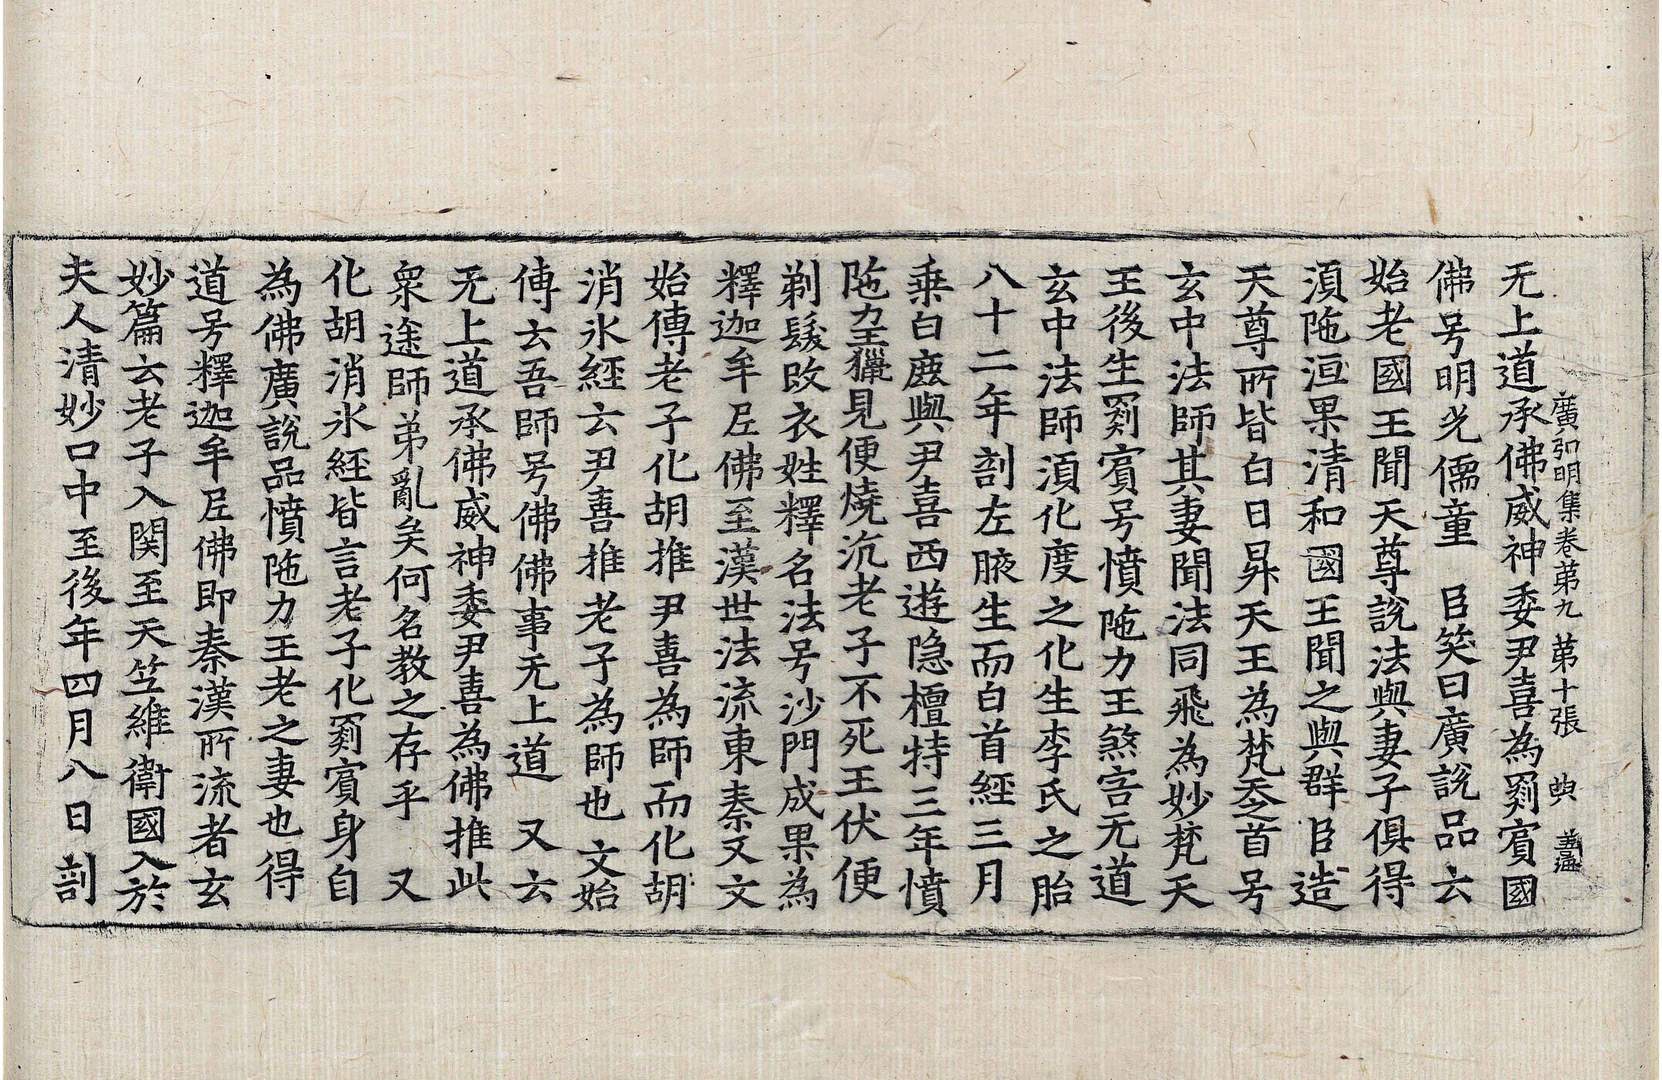 廣弘明集卷苐九　苐十張　典
无上道承佛威神委尹喜為罽賓國
佛号明光儒童　臣笑曰廣說品云
始老國王聞天尊說法與妻子俱得
湏陁洹果清和國王聞之與群臣造
天尊所皆白日昇天王為梵天之首号
玄中法師其妻聞法同飛為妙梵天
王後生罽賓号憤陁力王煞害无道
玄中法師湏化度之化生李氏之胎
八十二年剖左腋生而白首經三月
乗白鹿與尹喜西遊隐檀特三年憤
陁力王獵見便燒沉老子不死王伏便
剃髮改衣姓釋名法号沙門成果為
釋迦牟尼佛至漢世法流東秦又文
始傳老子化胡推尹喜為師而化胡
消氷經云尹喜推老子為師也文始
傳云吾師号佛佛事无上道　又云
无上道承佛威神委尹喜為佛推此
衆途師弟亂矣何名教之存乎　又
化胡消氷經皆言老子化罽賓身自
為佛廣說品憤陁力王老之妻也得
道号釋迦牟尼佛即秦漢所流者玄
妙篇云老子入関至天竺維衛國入於
夫人清妙口中至後年四月八日剖